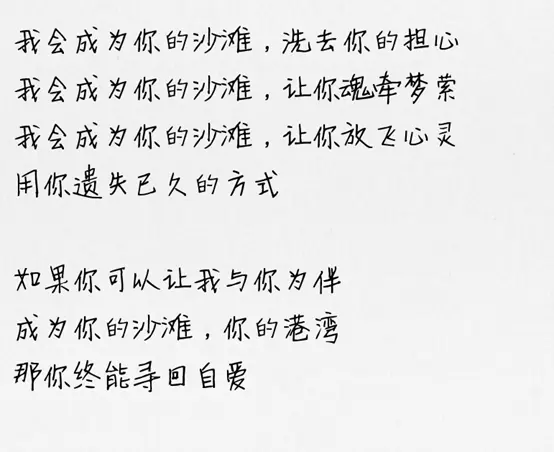 我会成为你的沙滩，洗去你的担心
我会成为你的沙滩，让你魂牵梦萦
我会成为你的沙滩，让你放飞心灵
用你遗失已久的方式
如果你可以让我与你为伴
成为你的沙滩，你的港湾
那你终能寻回自爱